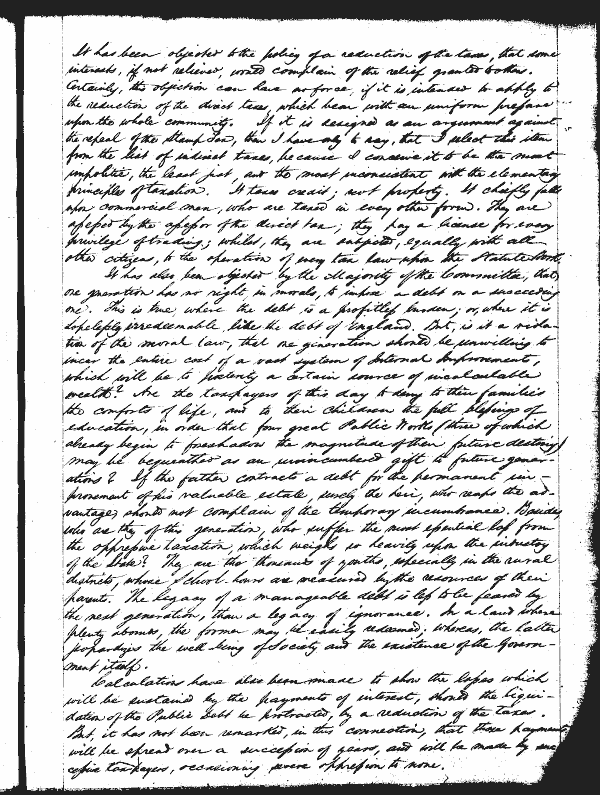 It has been objected to the policy of a reduction of the taxes, that some
interests, if not relieved, would complain of the relief granted to others.
Certainly, the objection can have no force, if it is intended to apply to
the reduction of the direct taxes, which bear with an uniform pressure
upon the whole community. If it is designed as an argument against
the repeal of the Stamp Tax, then I have only to say, that I select this item
from the list of indirect taxes, because I conceive it to be the most
impolitic, the least just, and the most inconsistent with the elementary
principles of taxation. It taxes credit; not property. It chiefly falls
upon commercial men, who are taxed in every other form. They are
assessed by the assessor of the direct tax; they pay a license for every
privilege of trading; whilst, they are subjected, equally with all
other citizens, to the operation of every tax law upon the Statute Book.
It has also, been objected by the Majority of the Committee, that
one generation has no right, in morals, to impose a debt on a succeeding
one. This is true, where the debt is a profitless burden; or, where it is
hopelessly irredeemable, like the debt of England. But, is it a viola-
tion of the moral law, that one generation should be unwilling to
incur the entire cost of a vast system of Internal Improvements,
which will be to posterity a certain source of incalculable
wealth? Are the taxpayers of this day to deny to their families
the comforts of life, and to their children the full blessings of
education, in order that four great Public Works (three of which
already begin to foreshadow the magnitude of their future destiny)
may be bequeathed as an unincumbered gift to future gener-
ations? If the father contracts a debt for the permanent im-
provement of his valuable estate, surely the heir, who reaps the ad-
vantage, should not complain of the temporary incumbrance. Besides,
who are they of this generation, who suffer the most essential loss from
the oppressive taxation, which weighs so heavily upon the industry
of the State? They are the thousands of youths, especially in the rural
districts, whose School-hours are measured by the resources of their
parents. The legacy of a manageable debt is less to be feared by
the next generation, than a legacy of ignorance. In a land where
plenty abounds, the former may be easily redeemed; whereas, the latter
jeopardizes the well being of Society and the existence of the Govern-
ment itself.
Calculations have also been made to show the losses which
will be sustained by the payments of interest, should the liqui-
dation of the Public Debt be protracted, by a reduction of the taxes.
But, it has not been remarked, in this connection, that those payments
will be spread over a succession of years, and will be made by suc-
cessive taxpayers, occasioning severe oppression to none.